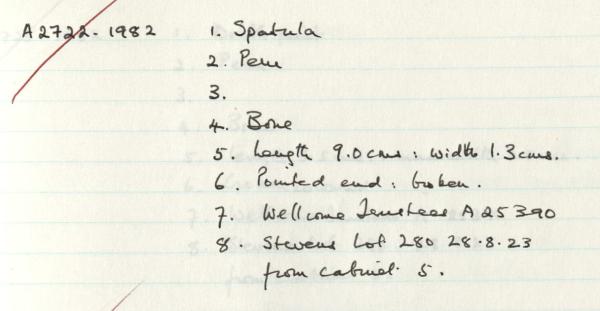 A2722-1982 1. Spatula
2. Peru
3.
4. Bone
5. Length 9.0cms: width 1.3cms.
6. Pointed end: broken.
7. Wellcome Trustees A25390
8. Stevens Lot 280 28.8.23
from cabinet 5.